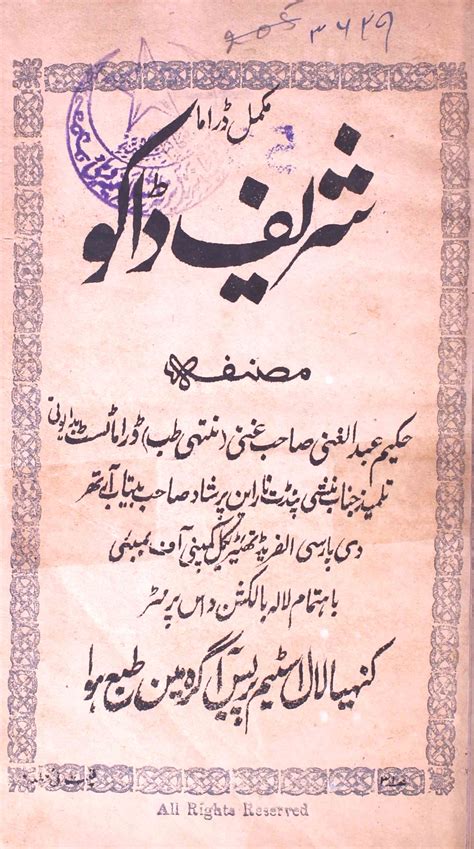 ۳۶۲۹
مکمل ڈراما
شریف ڈاکو
مصنفہ
حکیم عبدالغنی صاحب غنی (منتہی طب) ڈراماٹسٹ بدایونی
تلمیذ جناب منشی پنڈت ناراین پرشاد صاحب بیتاب آتھر
دی پارسی الفریڈ تھیٹریکل کمپنی آف بمبئی
باہتمام لالہ بالکشن داس پرنٹر
کنہیا لال اسٹیم پریس آگرہ مین طبع ہوا
All Rights Reserved